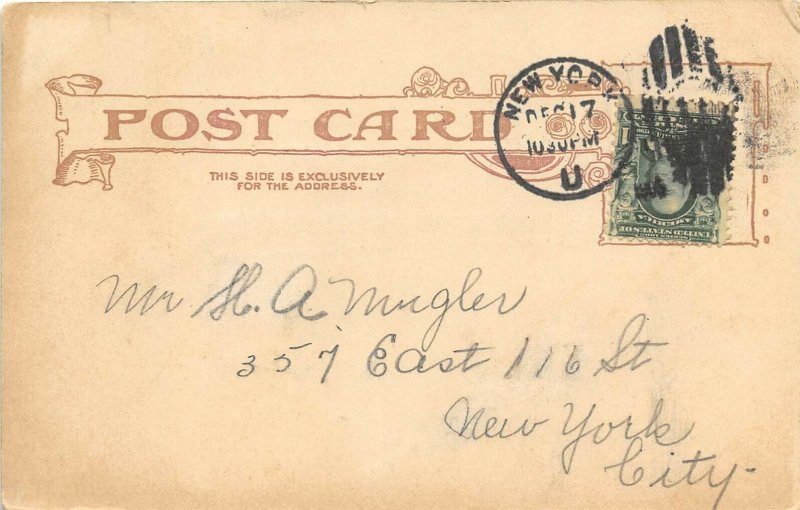 POST CARD
THIS SIDE IS EXCLUSIVELY
FOR THE ADDRESS.
NEW YORK
DEC 17
1030PM
U
UNITED STATES OF
AMERICA
Mr H. A. Mugler
357 East 116 St
New York
City.